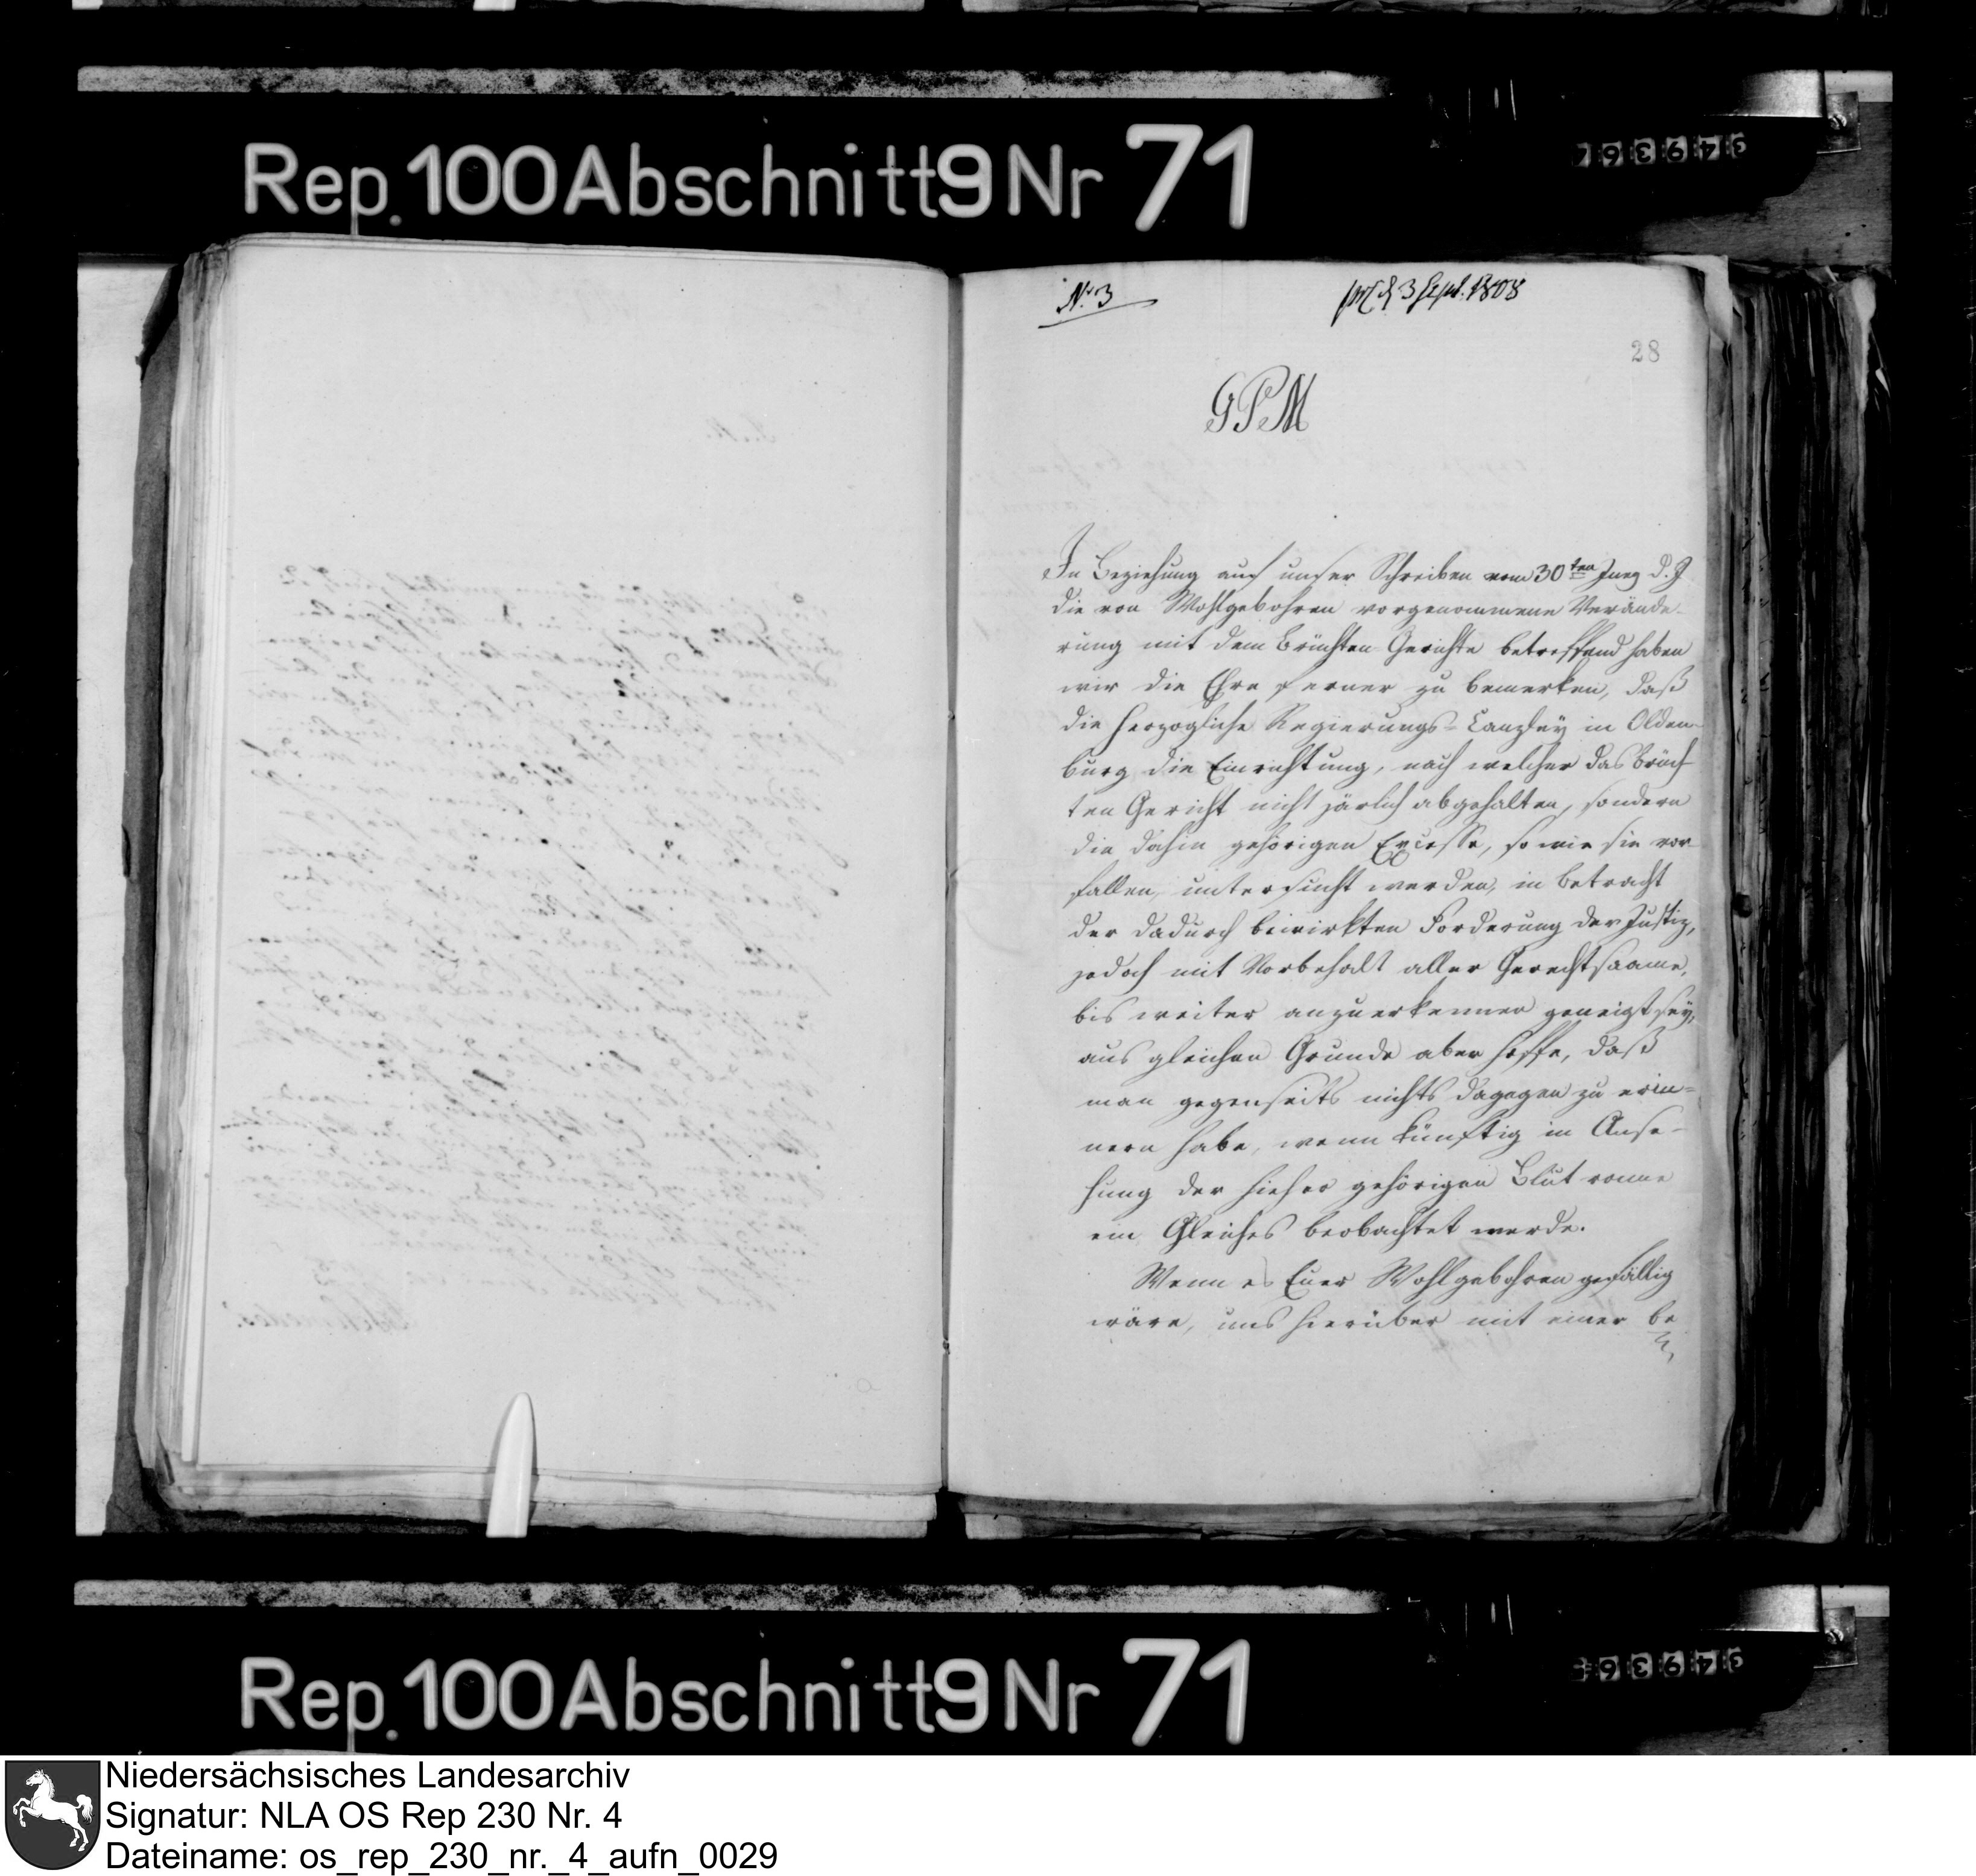 Rep. 100 Abschnitt 9 Nr 71
349367
No. 3
28
GPM
In Beziehung auf unser Schreiben vom 30ten d. J
die von Wohlgebohren vorgenommene Verände-
rung mit dem Brüchten Gerichte betreffend haben
wir die Ehre ferner zu bemerken, daß
die Herzogliche Regierungs-Canzley in Olden-
burg die Einrichtung, nach welcher das Brüch
ten Gericht nicht järlich abgehalten, sondern
die dahin gehörigen Excesse, so wie sie vor-
fallen, untersucht werden, in betracht
der dadurch bewirkten Förderung der Justiz,
jedoch mit Vorbehalt aller Gerechtsaame,
bis weiter anzuerkennen geneigt sey,
aus gleichen Grunde aber hoffe, daß
man gegenseits nichts dagegen zu erin-
nern habe, wenn künftig in Anse-
hung der hieher gehörigen Blut
ein Gleiches beobachtet werde.
Wenn es Euer Wohlgebohren gefällig
wäre, uns hierüber mit einer be
Rep. 100 Abschnitt 9 Nr 71
Niedersächsisches Landesarchiv
Signatur: NLA OS Rep 230 Nr. 4
Dateiname: os_rep_230_nr._4_aufn_0029